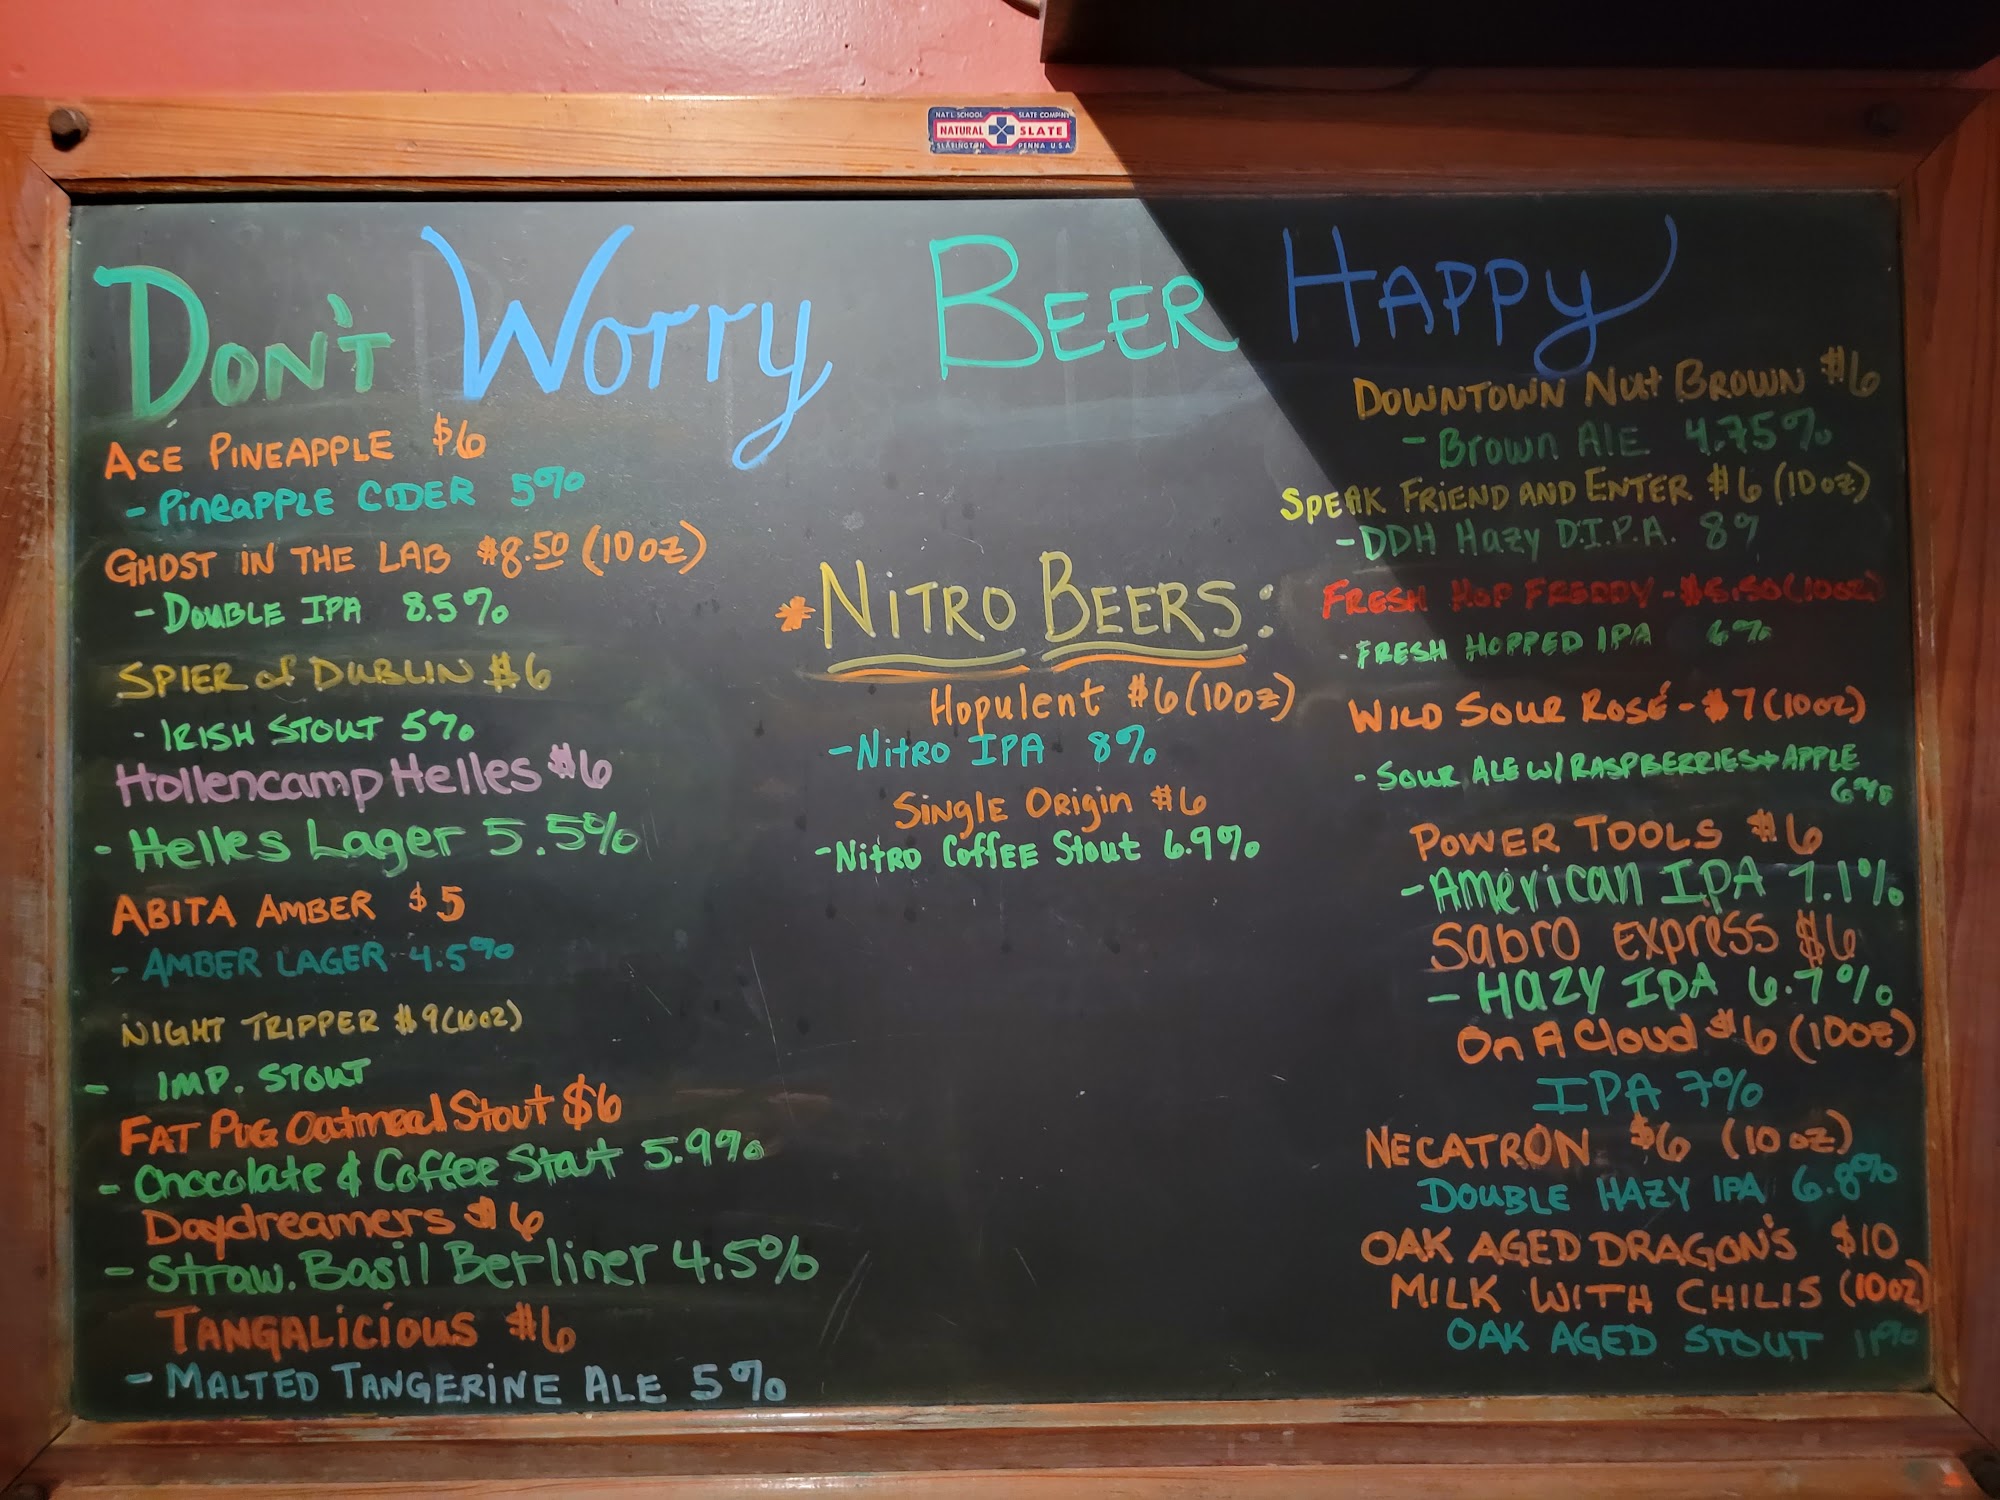 NAT'L SCHOOL SLATE COMPANY
NATURAL SLATE
SLATINGTON PENNA U.S.A.
DON'T Worry BEER HAPPY
ACE PINEAPPLE $6
- PineAPPLE CIDER 5%
GHOST IN THE LAB $8.50 (10oz)
- DOUBLE IPA 8.5%
SPIER of DUBLIN $6
- IRISH STOUT 5%
Hollencamp Helles $6
- Helles Lager 5.5%
ABITA AMBER $5
- AMBER LAGER 4.5%
NIGHT TRIPPER $9 (10oz)
- IMP. STOUT
FAT PUG Oatmeal Stout $6
- Chocolate & Coffee Stout 5.9%
Daydreamers $6
- Straw. Basil Berliner 4.5%
TANGALICIOUS $6
- MALTED TANGERINE ALE 5%
*NITRO BEERS:
Hopulent $6 (10oz)
- NITRO IPA 8%
SINGLE ORIGIN $6
- NITRO COFFEE Stout 6.9%
DOWNTOWN NUT BROWN $6
- Brown ALE 4.75%
SPEAK FRIEND AND ENTER $6 (10oz)
- DDH Hazy D.I.P.A. 8%
FRESH HOP FREDDY - $5.50 (10oz)
- FRESH HOPPED IPA 6%
WILD SOUR ROSÉ - $7 (10oz)
- SOUR ALE W/ RASPBERRIES + APPLE
6%
POWER TOOLS $6
- American IPA 7.1%
Sabro Express $6
- HAZY IPA 6.7%
On A Cloud $6 (10oz)
IPA 7%
NECATRON $6 (10oz)
DOUBLE HAZY IPA 6.8%
OAK AGED DRAGON'S $10
MILK WITH CHILIS (10oz)
OAK AGED STOUT 11%